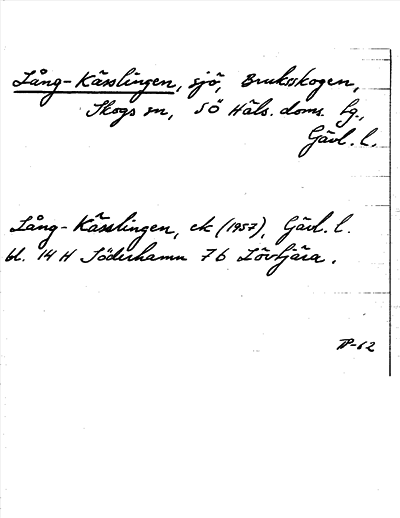 Lång-Kässlingen, sjö, Bruksskogen,
Skogs sn, SÖ Häls. doms. fg.,
Gävl. l.
Lång-Kässlingen, ek (1957), Gävl. l.
bl. 14 H Söderhamn 7 b Lövtjära.
-62